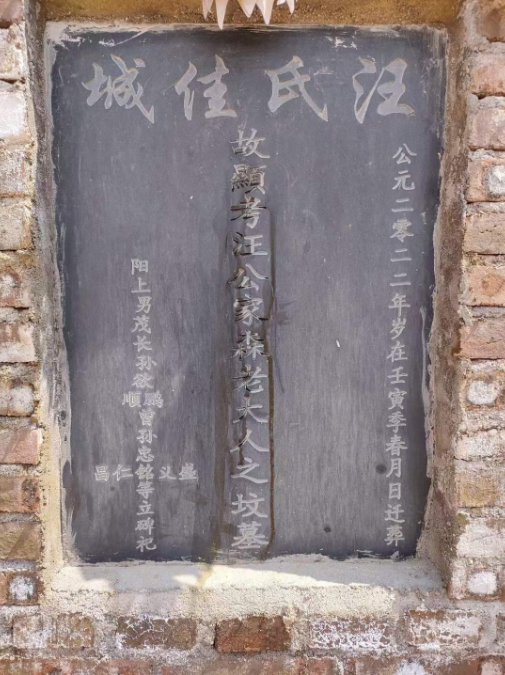 汪氏佳城
公元二零二二年岁在壬寅季春月日迁葬
故顯考汪公家森老大人之坟墓
阳上男茂长孙欲鹏順曾孙忠銘等立碑祀
盛义仁昌